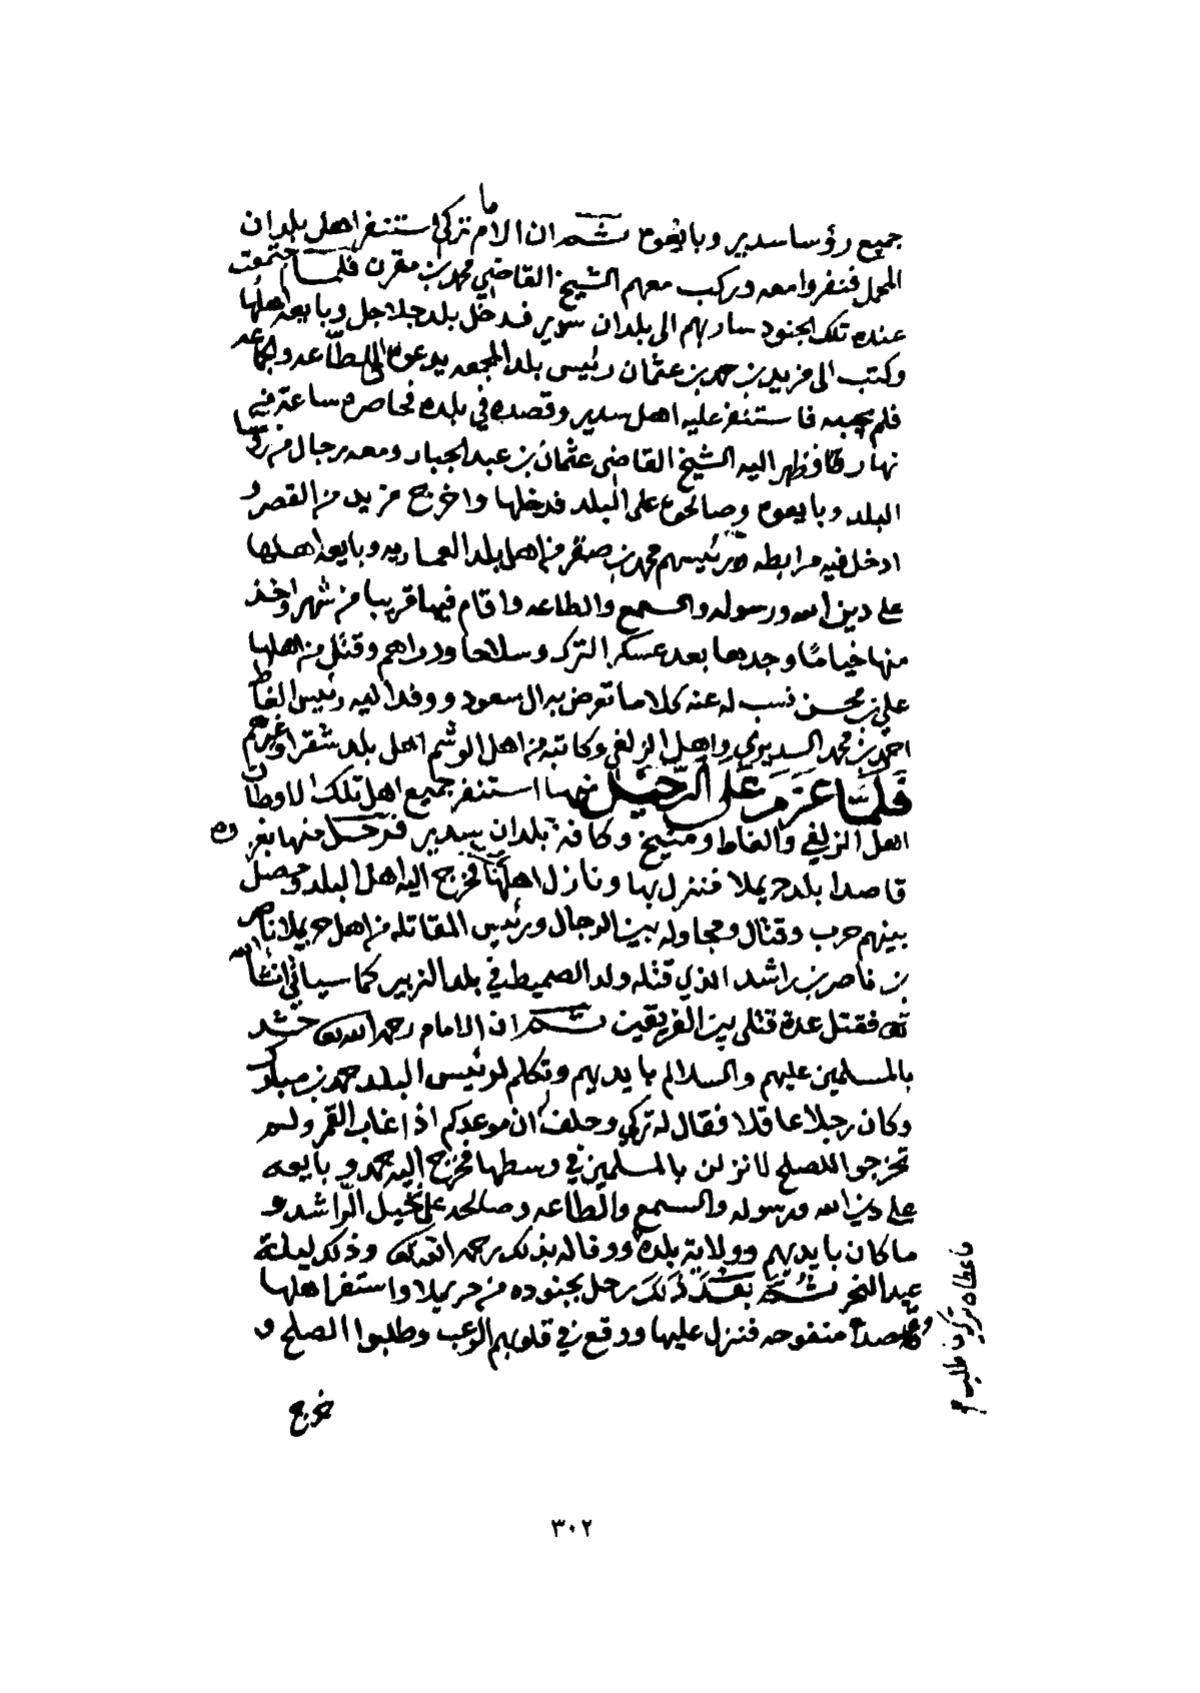 جميع رؤسا سدير وبايعوه ثم ان الامام تركي استنفر اهل بلدان
المحمل فنفروا معه وركب معهم الشيخ القاضي محمد بن مقرن فلما اجتمعت
عنده تلك الجنود سار بهم الى بلدان سدير فدخل بلد جلاجل وبايعه اهلها
وكتب الى مزيد بن حمد بن عثمان رئيس بلد المجمعه يدعوه الى الطاعه والجماعه
فلم يجبه فاستنفر عليه اهل سدير وقصده في بلده فحاصره ساعة من
نهار فظهر اليه الشيخ القاضي عثمان بن عبد الجبار ومعه رجال من رؤسا
البلد وبايعوه وصالحوه على البلد فدخلها واخرج مزيد من القصر و
ادخل فيه مرابطه رئيسهم محمد بن صقر من اهل بلد العماريه وبايعه اهلها
على دين الله ورسوله والسمع والطاعه واقام فيها قريبا من شهر واخذ
منها خياما وجدها بعد عسكر الترك وسلاحا ودراهم وقتل من اهلها
علي بن محسن نسب له عنه كلاما تعرض به ال سعود ووفد اليه رئيس الغاط
احمد بن محمد السديري واهل الزلفي وكاتبه من اهل الوشم اهل بلد شقرا وغيرهم
فلما عزم على الرحيل منها استنفر جميع اهل تلك الاوطان
اهل الزلفي والغاط ومنيخ وكافة بلدان سدير فرحل منها بغزوه
قاصدا بلد حريملا فنزل بها ونازل اهلها فخرج اليه اهل البلد وحصل
بينهم حرب وقتال ومجاوله بين الرجال ورئيس المقاتله من اهل حريملا ناصر
بن ناصر بن راشد الذي قتله ولد الصميط في بلد الزبير كما سياتي انشا الله
تع فقتل عدة قتلى بين الفريقين ثم ان الامام رحمه الله تعالى حشد
بالمسلمين عليهم والسلالم بايديهم وتكلم لرئيس البلد حمد بن مبارك
وكان رجلا عاقلا فقال له تركي وحلف ان موعدكم اذا غاب القمر ولم
تخرجوا للصلح لانزلن بالمسلمين في وسطها فخرج اليه حمد وبايعه
على دين الله ورسوله والسمع والطاعه وصالحه على نخيل ال راشد و
ما كان بايديهم وولاية بلده ووفا له بذلك رحمه الله تعالى وذلك ليلة
عيد النحر ثم بعد ذلك رحل بجنوده من حريملا واستنفر اهلها
وقصد منفوحه فنزل عليها ووقع في قلوبهم الرعب وطلبوا الصلح و
فاعطاه تركي ما طلب
خرج
٣٠٢